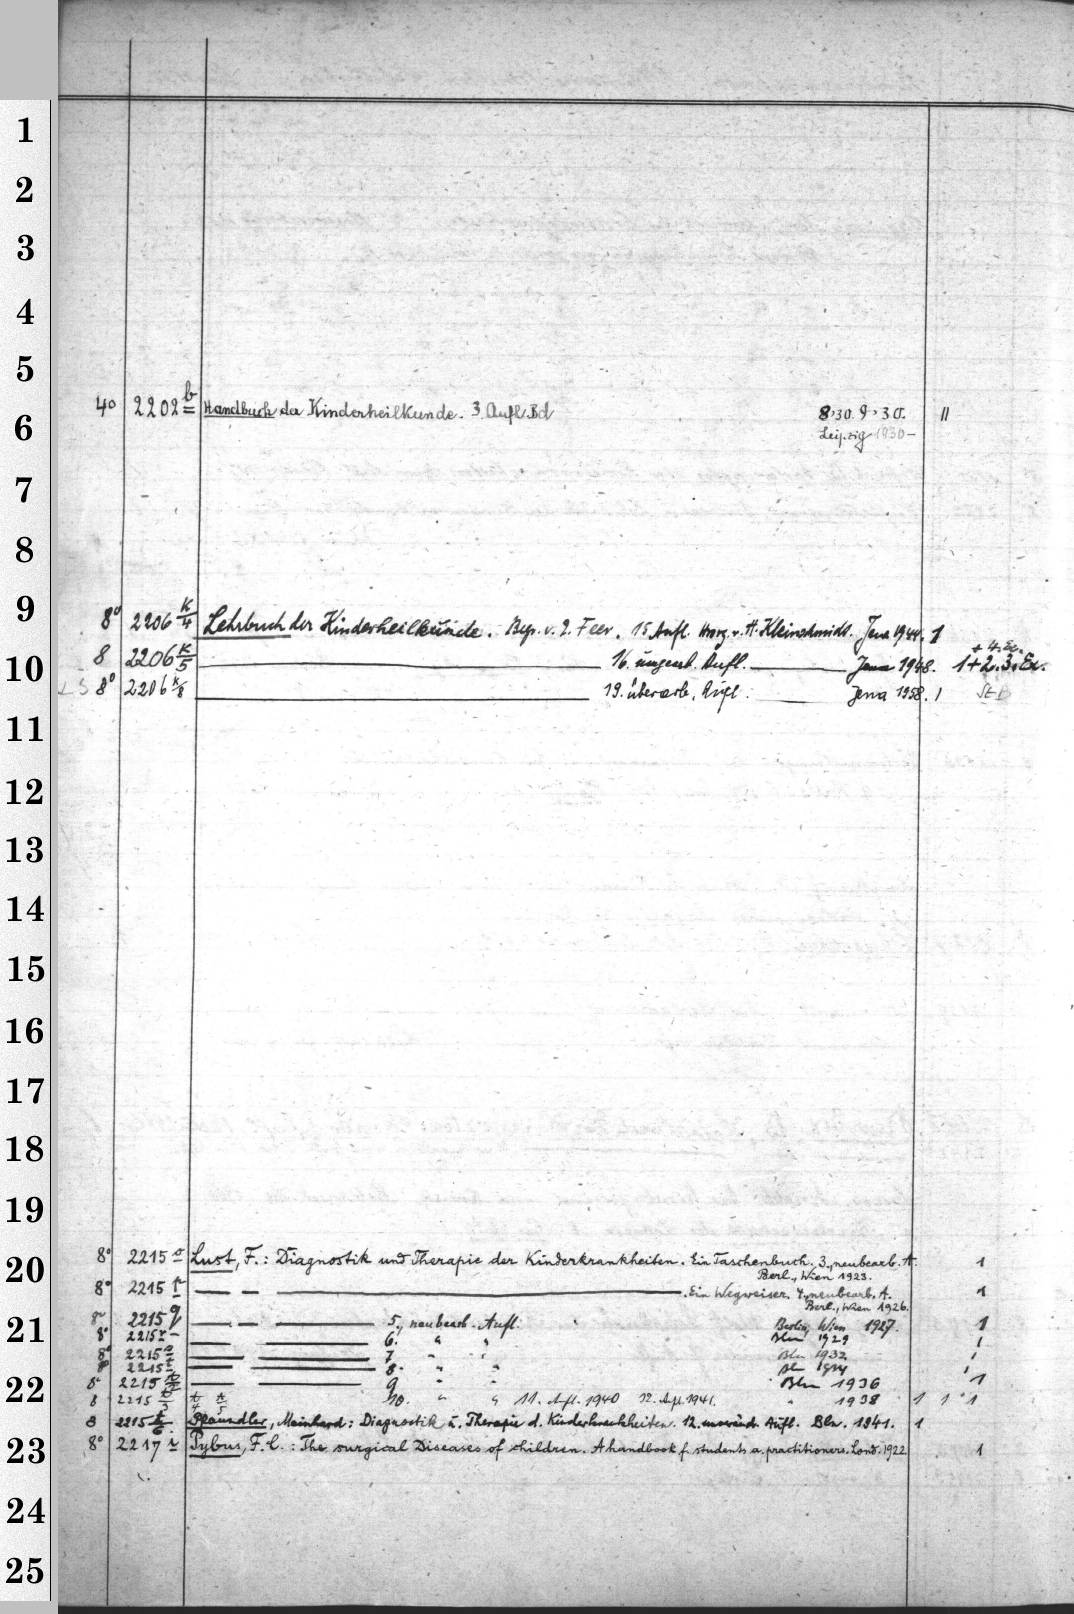 1
2
3
4
5
6
4° 2202 b Handbuch der Kinderheilkunde. 3. Aufl. Bd 8·30. 9·30. II
Leipzig 1930–
7
8
9
8° 2206 K/4 Lehrbuch der Kinderheilkunde. Begr. v. E. Feer. 15. Aufl. Hrsg. v. H. Kleinschmidt. Jena 1944. 1
+ 4. Ex.
10
8 2206 K/5 16. umgearb. Aufl. Jena 1948. 1+2.3. Ex.
8° 2206 K/8 19. überarb. Aufl. Jena 1958. 1
11
12
13
14
15
16
17
18
19
20
8° 2215 o Lust, F.: Diagnostik und Therapie der Kinderkrankheiten. Ein Taschenbuch. 3., neubearb. A. 1
Berl., Wien 1923.
8° 2215 p — — . Ein Wegweiser. 4., neubearb. A. 1
Berl., Wien 1926.
21
8° 2215 q — — 5., neubearb. Aufl. Berlin, Wien 1927. 1
8° 2215 r 6. " " Bln 1929 1
8° 2215 s 7 " " Bln 1932 1
8° 2215 t 8. " " Bln 1934 1
22
8° 2215 9 " " Bln 1936 1
8 2215 t/3 t/4 t/5 10. " " 11. Aufl. 1940 12. Aufl. 1941. " 1938 1 1 1
8 2215 t/6 Pfaundler, Meinhard: Diagnostik u. Therapie d. Kinderkrankheiten. 12. Aufl. Bln. 1941. 1
23
8° 2217 r Pybus, F. C.: The surgical Diseases of children. A handbook f. students a. practitioners. Lond. 1922 1
24
25